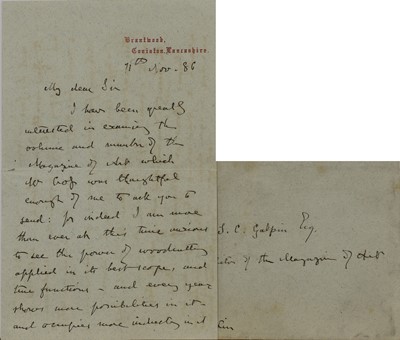 Brantwood,
Coniston, Lancashire.
11th Nov. 86
My dear Sir
I have been greatly
interested in examining the
volume and number of the
Magazine of Art which
Mr was thoughtful
enough of me to ask you to
send: for indeed I am more
than ever at this time anxious
to see the power of woodcutting
applied in its best scope, and
true functions - and every year
shows more possibilities in it -
and occupies more industry in it
S. C. Galpin Esq.
of the Magazine of Art